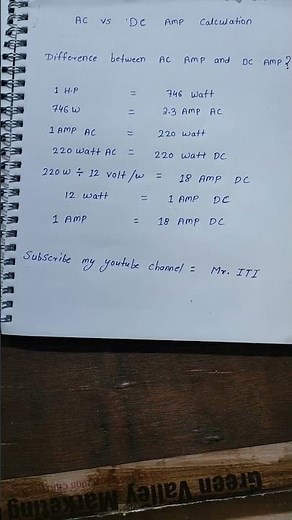 AC vs DC Amp Calculation
Difference between AC AMP and DC AMP?
1 H.P = 746 Watt
746 W = 3.3 AMP AC
1 AMP AC = 220 Watt
220 Watt AC = 220 Watt DC
220 W ÷ 12 Volt/w = 18 AMP DC
12 Watt = 1 AMP DC
1 AMP = 18 AMP DC
Subscribe my youtube channel = Mr. ITI
Green Valley Marketing